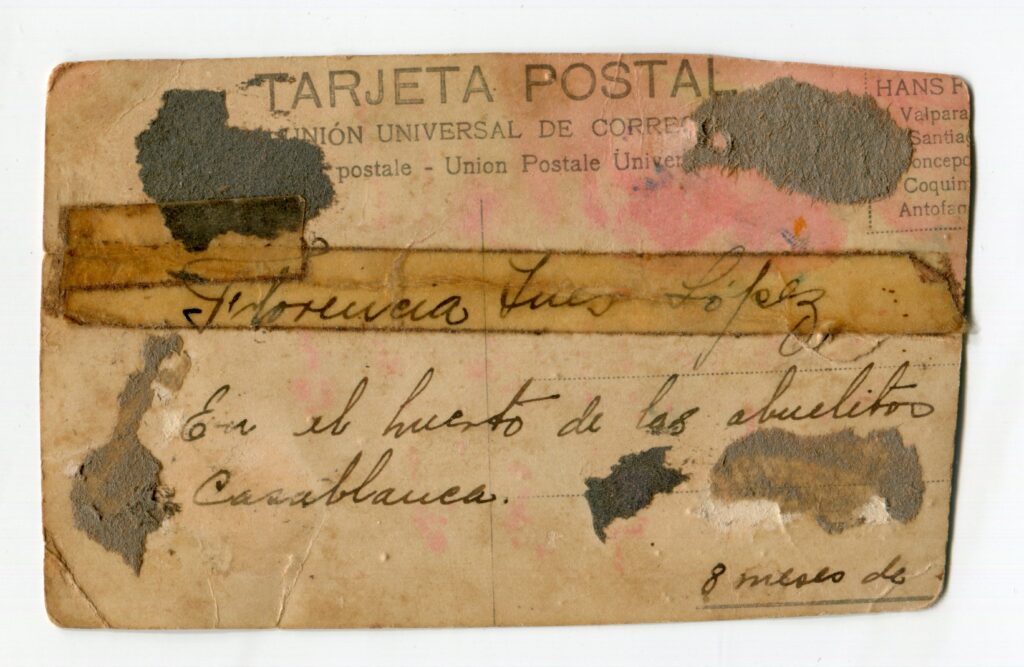 TARJETA POSTAL
UNIÓN UNIVERSAL DE CORREO
postale - Union Postale Univer
HANS F
Valpara
Santia
Concepc
Coquim
Antofag
Florencia Ines López
En el huerto de los abuelitos
Casablanca.
8 meses de